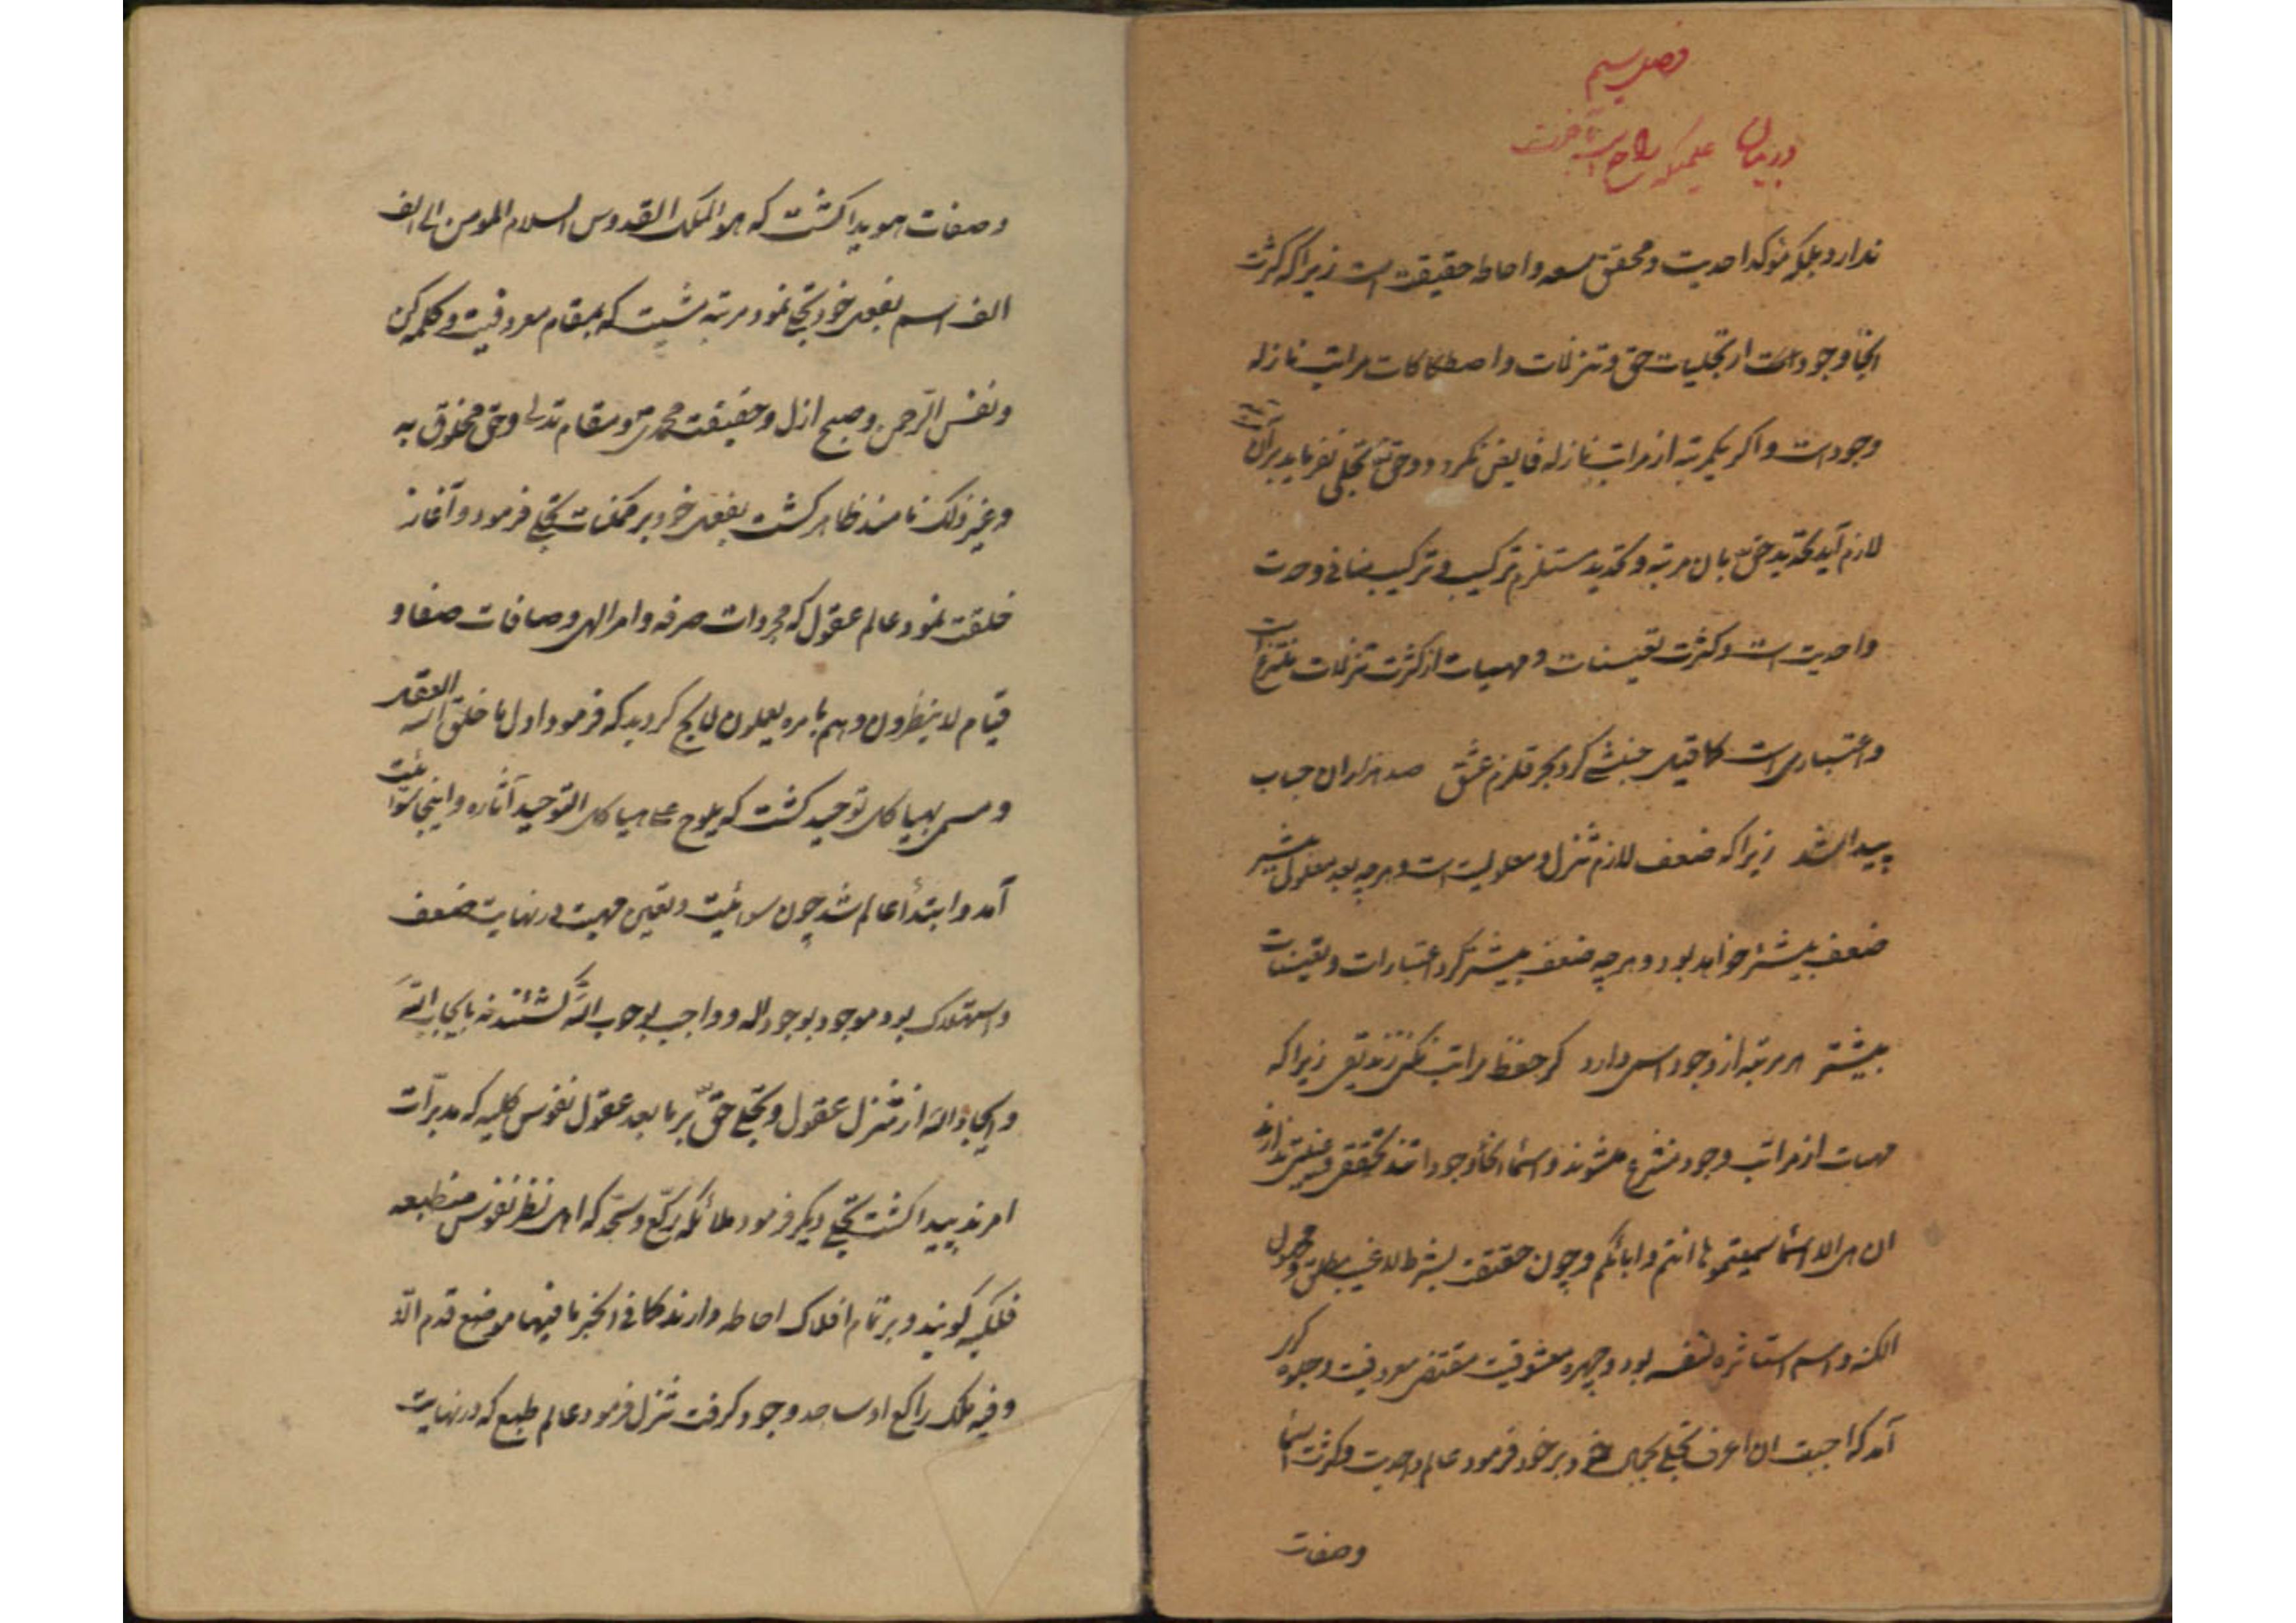 فصل سیم
در بیان علمیکه راجع است بآخرت
ندارد بلکه مؤکد احدیت و محقق سعه و احاطه حقیقت است زیرا که کثرت
انحأ وجودات از تجلیات حق و تنزلات و اصطکاکات مراتب نازله
وجود است و اکر یکمرتبه از مراتب نازله فایض نکردد و حق تع تجلی نفرماید بر آن
لازم آید تحدید حق بان مرتبه و تحدید مستلزم ترکیب و ترکیب منافی وحدت
واحدیت است و کثرت تعینات و مهیات از کثرت تنزلات منتزع است
و اعتباری است کما قیل جنبشی کرد بحر قلزم عشق صد هزاران حباب
پیدا شد زیرا که ضعف لازم تنزل و معلولیت است و هرچه بعد معلولی بیشتر
ضعف بیشتر خواهد بود و هرچه ضعف بیشتر کردد اعتبارات و تعینات
بیشتر هر مرتبه از وجود اسمی دارد کر حفظ مراتب نکنی زندیقی زیرا که
مهیات از مراتب وجود منتزع میشوند و اسمأ انحأ وجوداتند تحققی و عینیتی ندارند
ان هی الا اسمأ سمیتموها انتم و ابائکم و چون حقیقت بشرط لا غیب مطلق و مجهول
الکنه و اسم استاثره لنفسه بود و چهره معشوقیت مقتضی معروفیت و جلوه کری
آمد که احببت ان اعرف تجلی بجمال خود بر خود فرمود عالم واحدیت و کثرت اسمأ
وصفات
وصفات هویدا کشت که هو الملک القدوس السلام المومن الی الف
الف اسم بفعل خود تجلی نمود مرتبه مشیت که بمقام معروفیت و کلمه کن
و نفس الرحمن و صبح ازل و حقیقت محمدی و مقام تدلی و حق مخلوق به
و غیر ذلک نامند ظاهر کشت بفعل خود بر ممکنات تجلی فرمود و آغاز
خلقت نمود عالم عقول که مجردات صرفه و امر الهی و صافات صفا و
قیام لا ینظرون و هم بامره یعملون لایح کردید که فرمود اول ما خلق الله العقل
و مسمی بهیاکل توحید کشت که یلوح علی هیاکل التوحید آثاره و اینجا سوائیت
آمد و ابتدأ عالم شد چون سوائیت و تعین مهیت در نهایت ضعف
و استهلاک بود موجود بوجود اله و واجب بوجوب الله کشتند نه بایجاب الله
و ایجاد اله از تنزل عقول و تجلی حق بر ما بعد عقول نفوس کلیه که مدبرات
امرند پیدا کشت تجلی دیکر فرمود ملائکه رکع و سجد که اهل نظر نفوس منطبعه
فلکیه کویند و بر تمام افلاک احاطه دارند کما فی الخبر ما فیها موضع قدم الا
و فیه ملک راکع او ساجد وجود کرفت تنزل فرمود عالم طبع که در نهایت